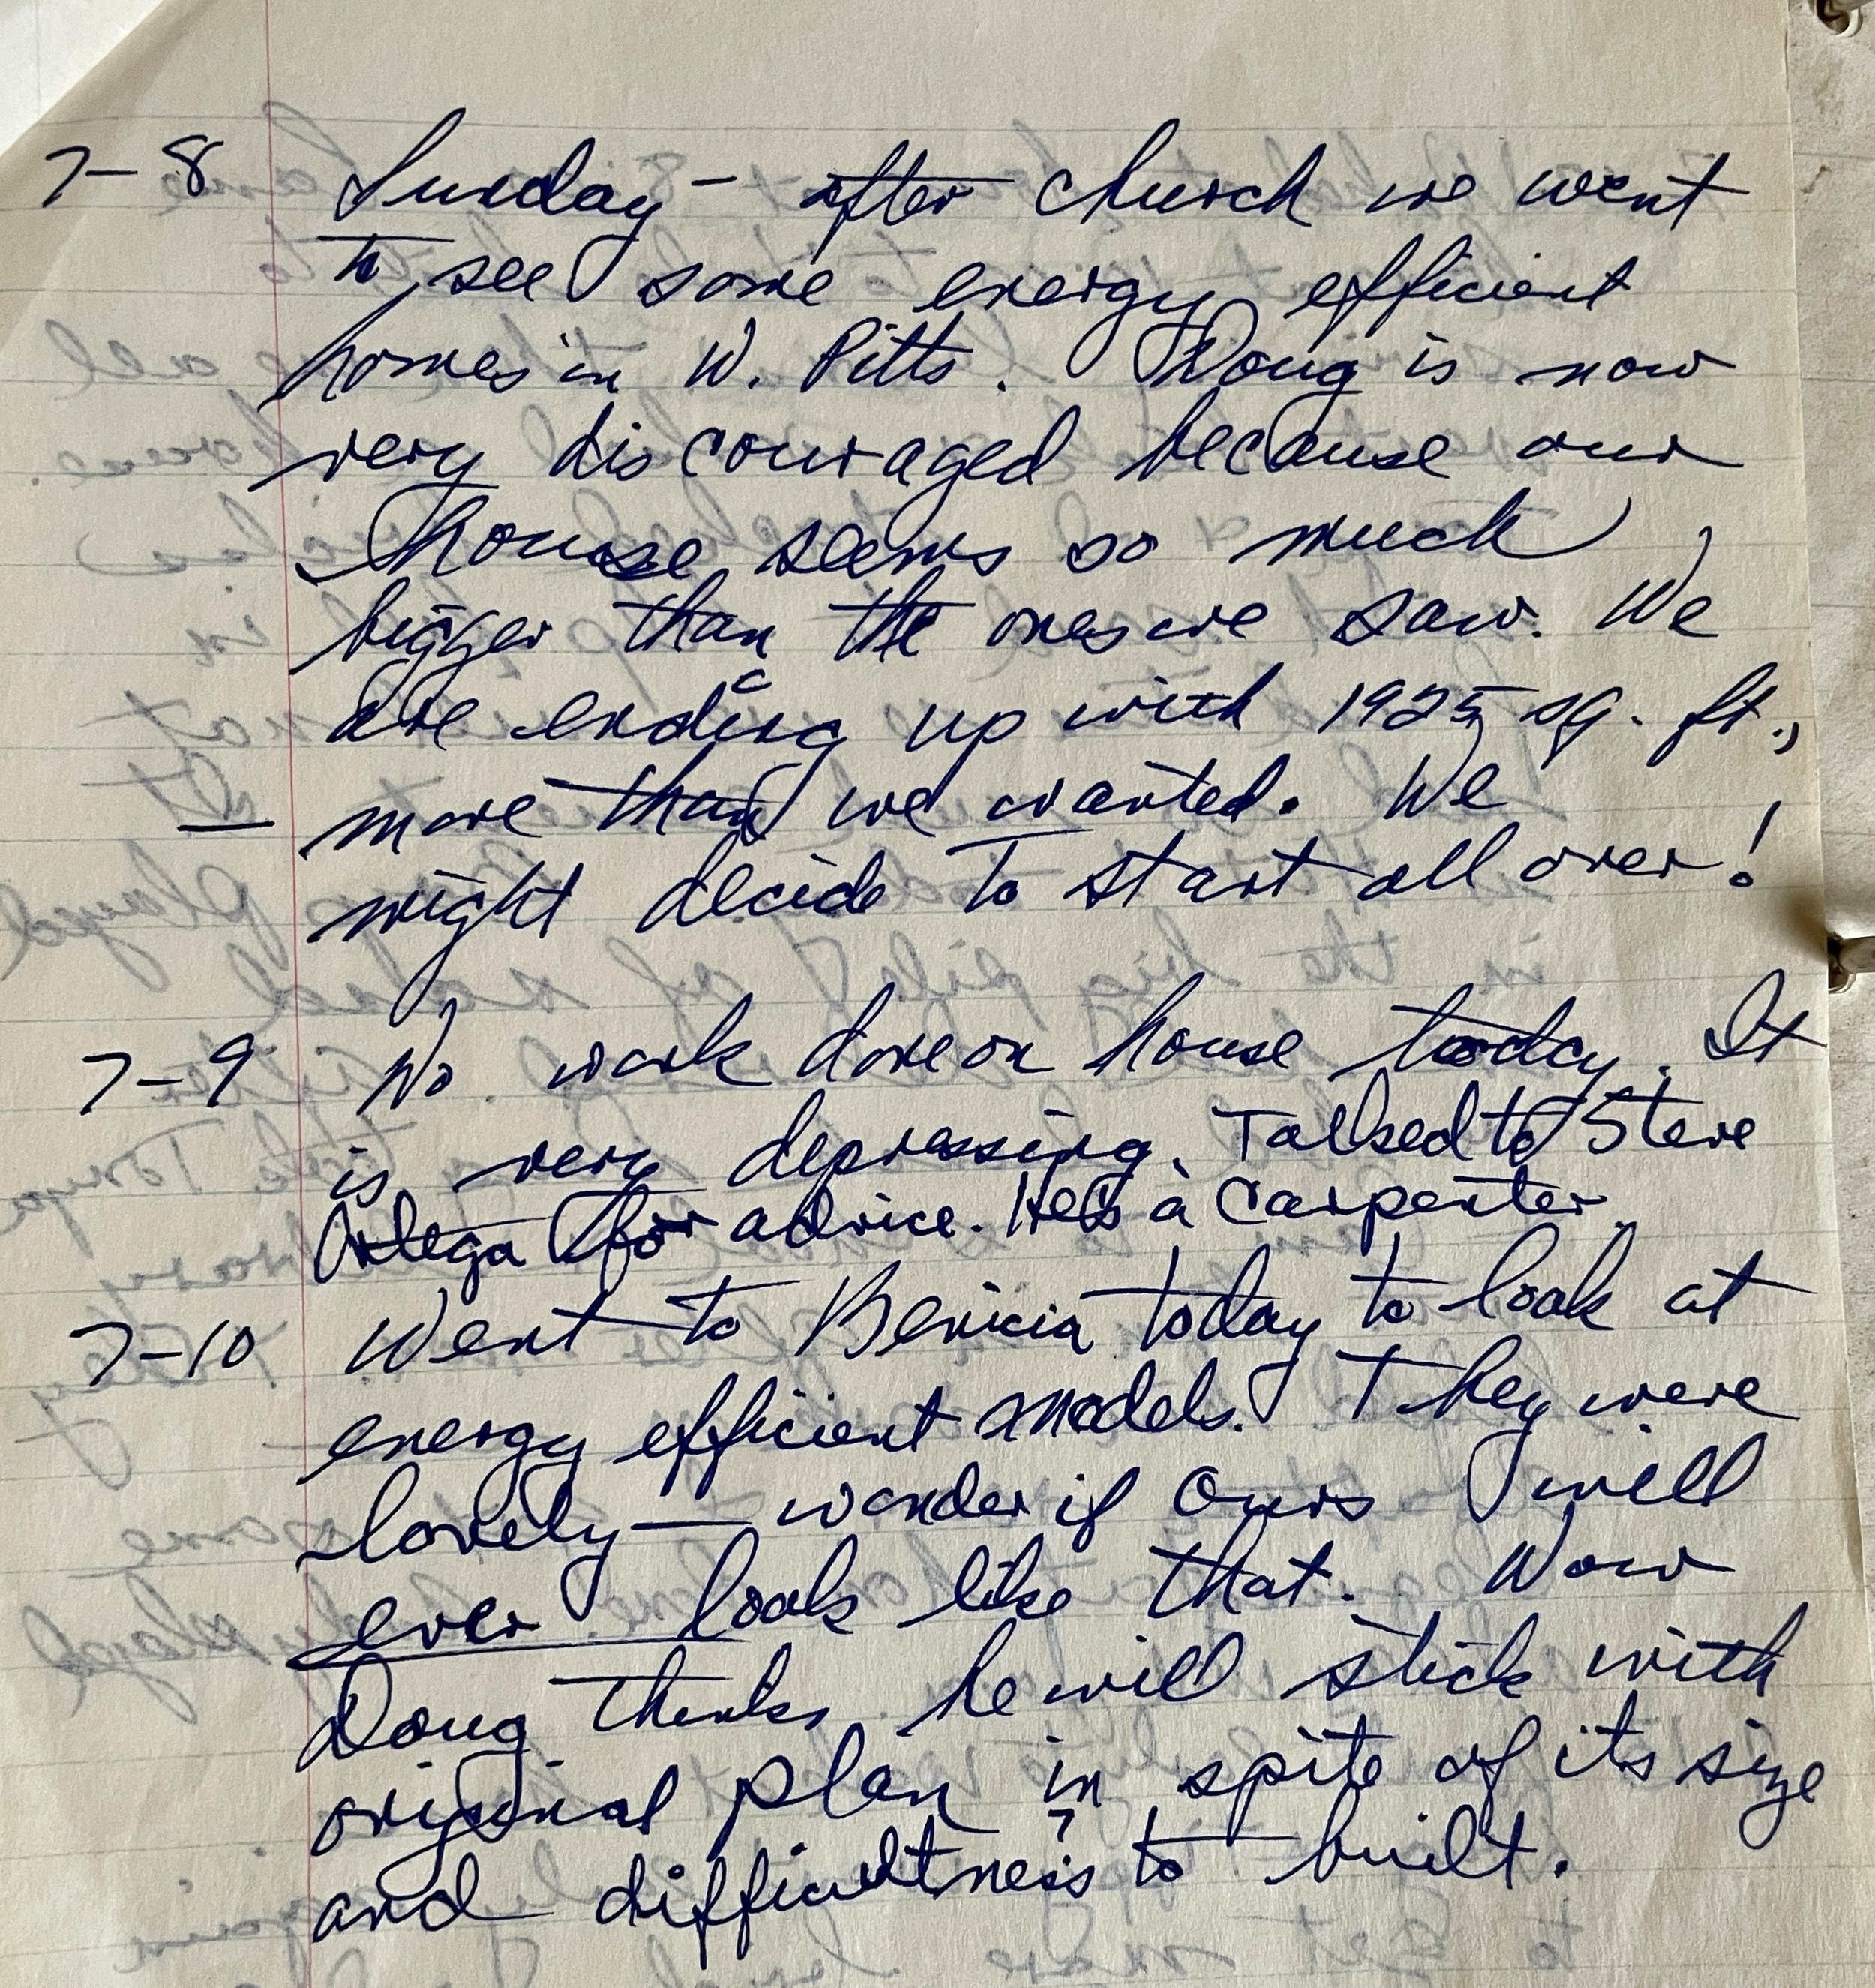 7-8 Sunday - after church we went
to see some energy efficient
homes in W. Pitts. Doug is now
very discouraged because our
house seems so much
bigger than the ones we saw. We
are ending up with 1925 sq. ft.,
more than we wanted. We
might decide to start all over!
7-9 No work done on house today. It
is very depressing. Talked to Steve
Ortega for advice. He's a carpenter.
7-10 Went to Benicia today to look at
energy efficient models. They were
lovely — wonder if ours will
ever look like that. Now
Doug thinks he will stick with
original plan in spite of its size
and difficultness to built.